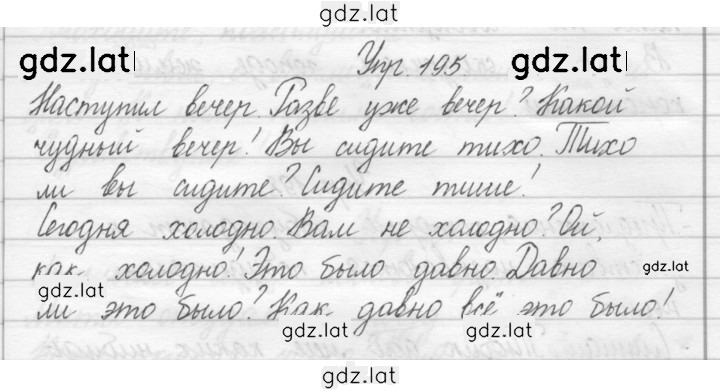 gdz.lat
gdz.lat Упр. 195 gdz.lat
Наступил вечер. Разве уже вечер? Какой
чудный вечер! Вы сидите тихо. Тихо
ли вы сидите? Сидите тише!
Сегодня холодно. Вам не холодно? Ой,
как холодно! Это было давно. Давно gdz.lat
gdz.lat
ли это было? Как давно всё это было!
gdz.lat gdz.lat
gdz.lat